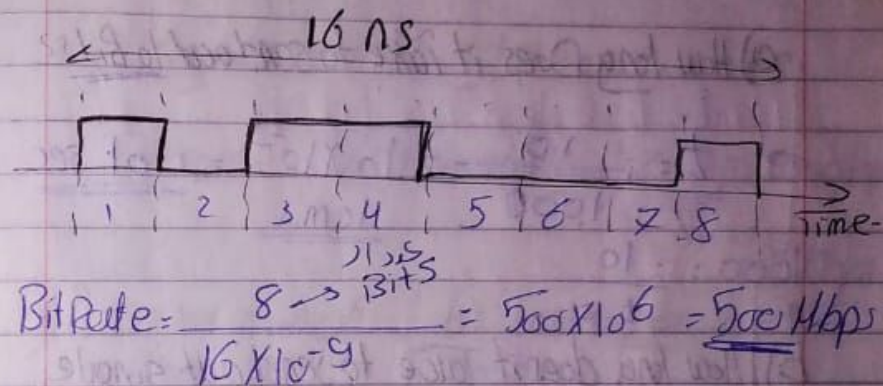 16 ns
1 2 3 4 5 6 7 8 Time
عدد الـ
Bits
BitRate = 8 / 16 × 10⁻⁹ = 500×10⁶ = 500 Mbps